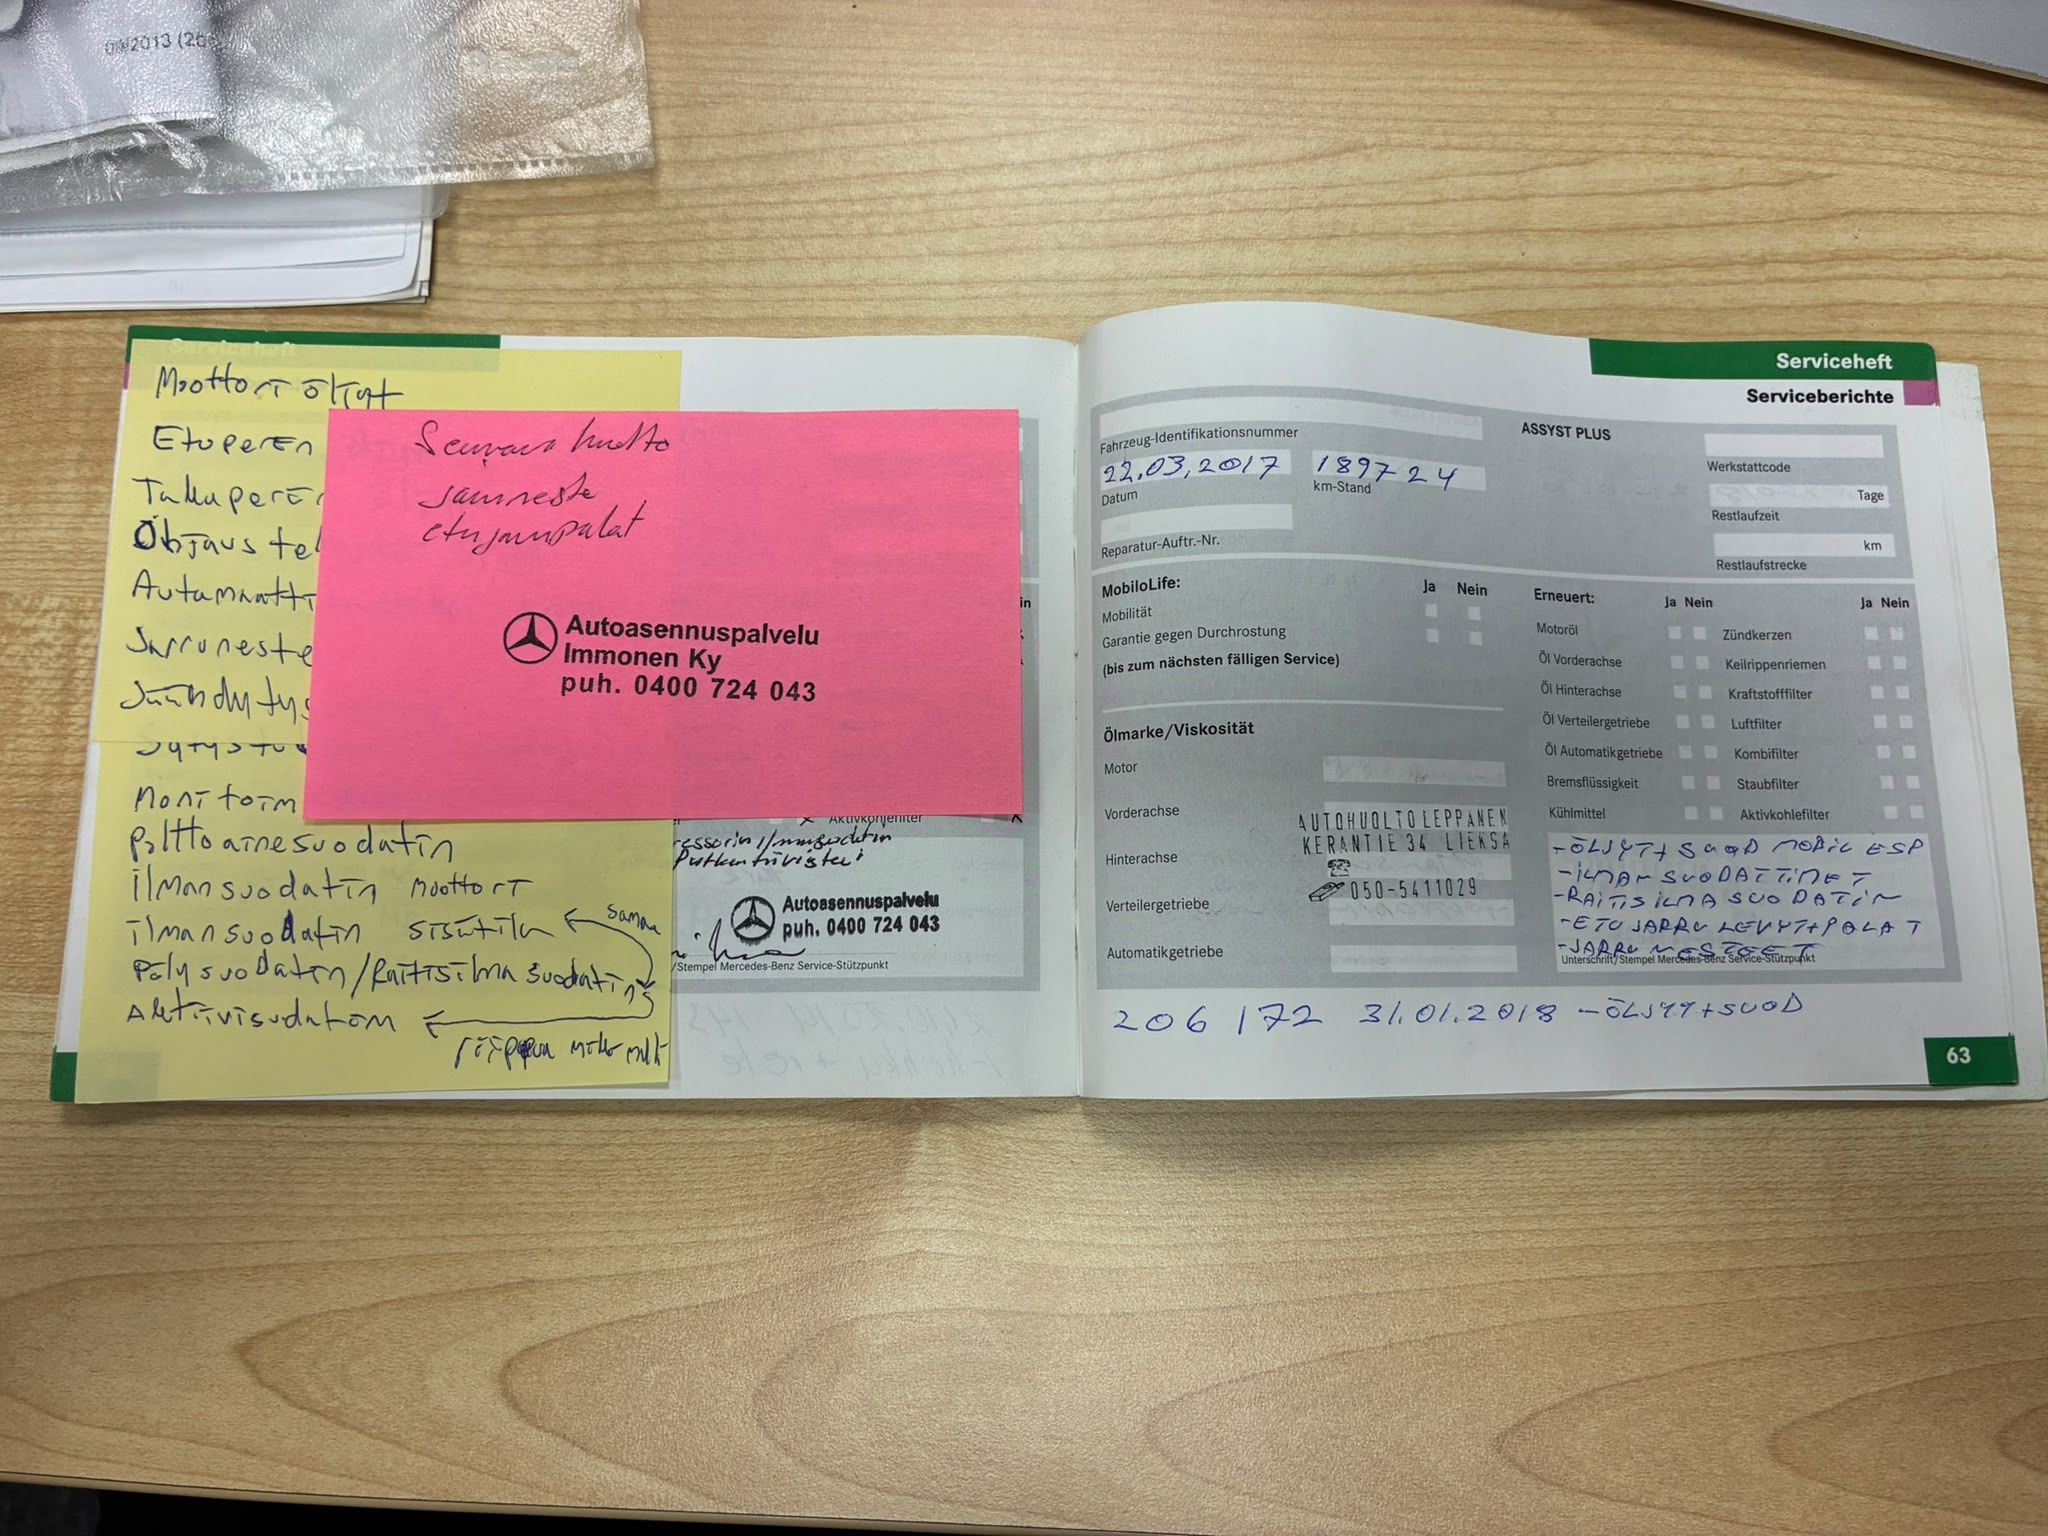 09/2013
Serviceheft
Moottori öljyt
Etuperän
Takaperän
Automaatti
Jarruneste
Jäähdytys
Monitoim
Polttoainesuodatin
ilmansuodatin moottori
ilmansuodatin sisätila
sama
Pölysuodatin/Raitisilmasuodatin
Aktiivisuodatin
riippuu
Seuraava huolto
jarruneste
etujarrupalat
Autoasennuspalvelu
Immonen Ky
puh. 0400 724 043
in
Aktivkohlefilter
Autoasennuspalvelu
puh. 0400 724 043
/Stempel Mercedes-Benz Service-Stützpunkt
Serviceheft
Serviceberichte
Fahrzeug-Identifikationsnummer
22.03.2017 189724
Datum km-Stand
Reparatur-Auftr.-Nr.
ASSYST PLUS
Werkstattcode
Tage
Restlaufzeit
km
Restlaufstrecke
MobiloLife: Ja Nein
Mobilität
Garantie gegen Durchrostung
(bis zum nächsten fälligen Service)
Erneuert: Ja Nein Ja Nein
Motoröl Zündkerzen
Öl Vorderachse Keilrippenriemen
Öl Hinterachse Kraftstofffilter
Öl Verteilergetriebe Luftfilter
Öl Automatikgetriebe Kombifilter
Bremsflüssigkeit Staubfilter
Kühlmittel Aktivkohlefilter
Ölmarke/Viskosität
Motor
Vorderachse
Hinterachse
Verteilergetriebe
Automatikgetriebe
AUTOHUOLTO LEPPÄNEN
KERANTIE 34 LIEKSA
050-5411029
-ÖLJYT+SUOD MOBIL ESP
-ILMANSUODATTIMET
-RAITISILMASUODATIN
-ETUJARRULEVYT+PALAT
-JARRUNESTEET
Unterschrift/Stempel Mercedes-Benz Service-Stützpunkt
206 172 31.01.2018 -ÖLJYT+SUOD
63